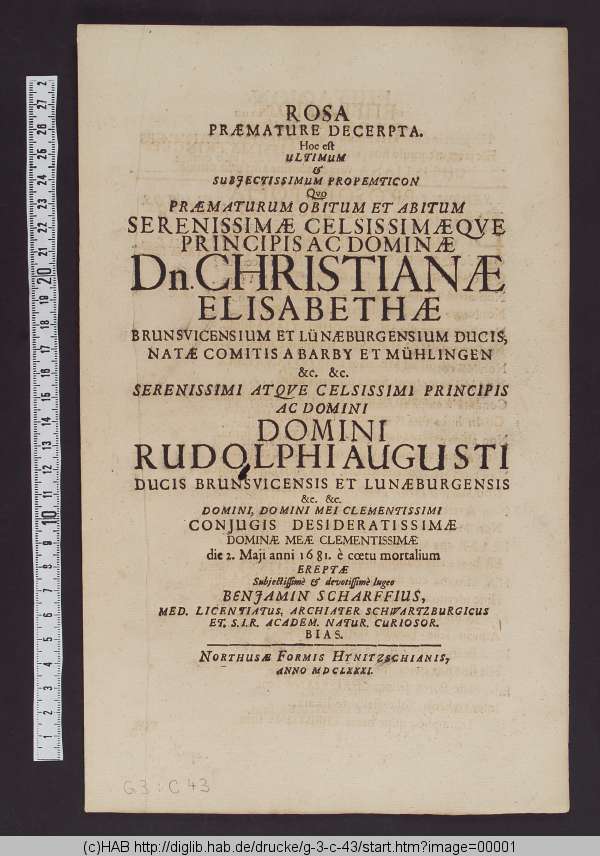 ROSA
PRÆMATURE DECERPTA.
Hoc est
ULTIMUM
&
SUBJECTISSIMUM PROPEMTICON
Qvo
PRÆMATURUM OBITUM ET ABITUM
SERENISSIMÆ CELSISSIMÆQVE
PRINCIPIS AC DOMINÆ
Dn. CHRISTIANÆ
ELISABETHÆ
BRUNSVICENSIUM ET LÜNÆBURGENSIUM DUCIS,
NATÆ COMITIS A BARBY ET MÜHLINGEN
&c. &c.
SERENISSIMI ATQVE CELSISSIMI PRINCIPIS
AC DOMINI
DOMINI
RUDOLPHI AUGUSTI
DUCIS BRUNSVICENSIS ET LUNÆBURGENSIS
&c. &c.
DOMINI, DOMINI MEI CLEMENTISSIMI
CONJUGIS DESIDERATISSIMÆ
DOMINÆ MEÆ CLEMENTISSIMÆ
die 2. Maji anni 1681. è cœtu mortalium
EREPTÆ
Subjectissimè & devotissimè lugeo
BENJAMIN SCHARFFIUS,
MED. LICENTIATUS, ARCHIATER SCHWARTZBURGICUS
ET. S.I.R. ACADEM. NATUR. CURIOSOR.
BIAS.
NORTHUSÆ FORMIS HYNITZSCHIANIS,
ANNO MDCLXXXI.
G3 : C 43
1 2 3 4 5 6 7 8 9 10 11 12 13 14 15 16 17 18 19 20 21 22 23 24 25 26 27 2
(c)HAB http://diglib.hab.de/drucke/g-3-c-43/start.htm?image=00001